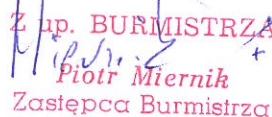 Z up. BURMISTRZA
Piotr Miernik
Zastępca Burmistrza